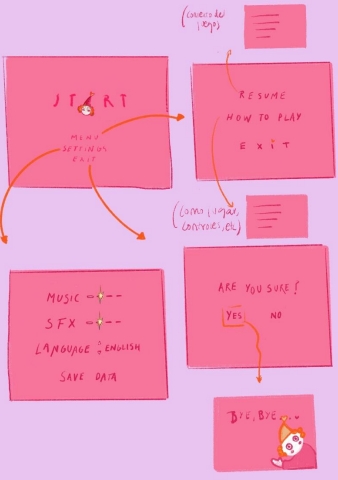 START
MENU
SETTINGS
EXIT
RESUME
HOW TO PLAY
EXiT
(como jugar,
controles, etc)
MUSIC
SFX
LANGUAGE : ENGLISH
SAVE DATA
ARE YOU SURE?
YES NO
BYE, BYE...